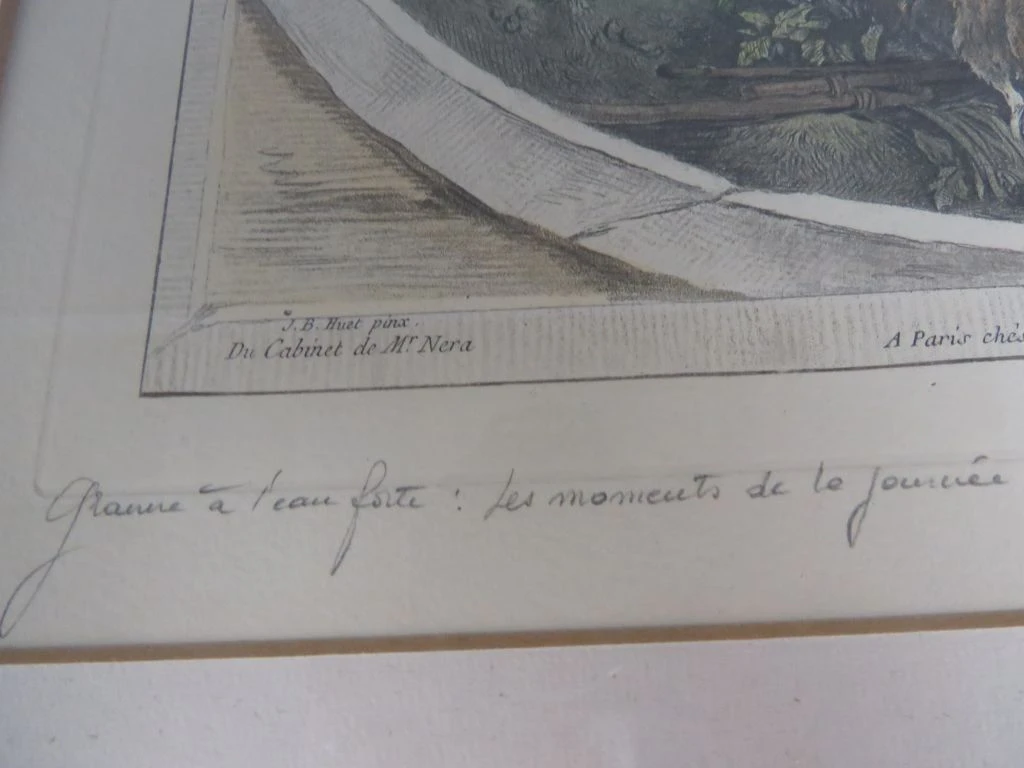 J. B. Huet pinx.
Du Cabinet de Mr Nera
A Paris chés
Gravure à l'eau forte : Les moments de la journée